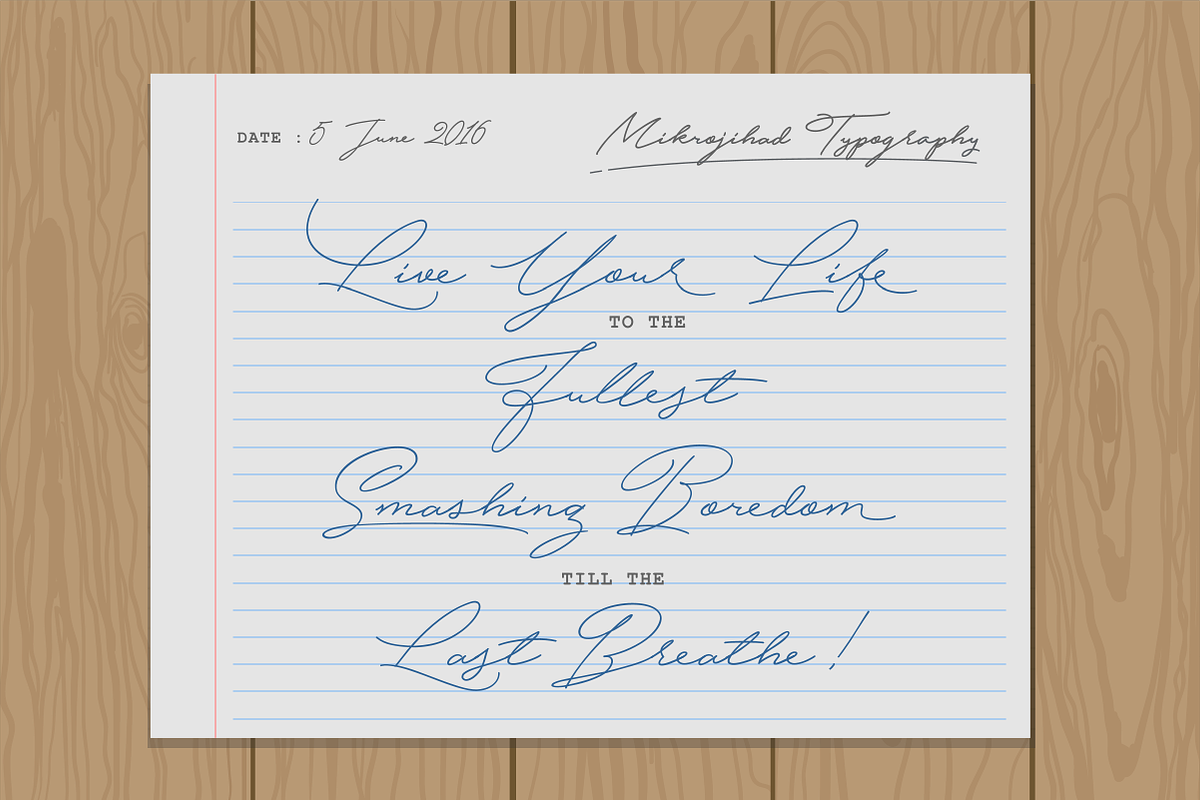 DATE : 5 June 2016
Mikrojihad Typography
Live Your Life
TO THE
Fullest
Smashing Boredom
TILL THE
Last Breathe !